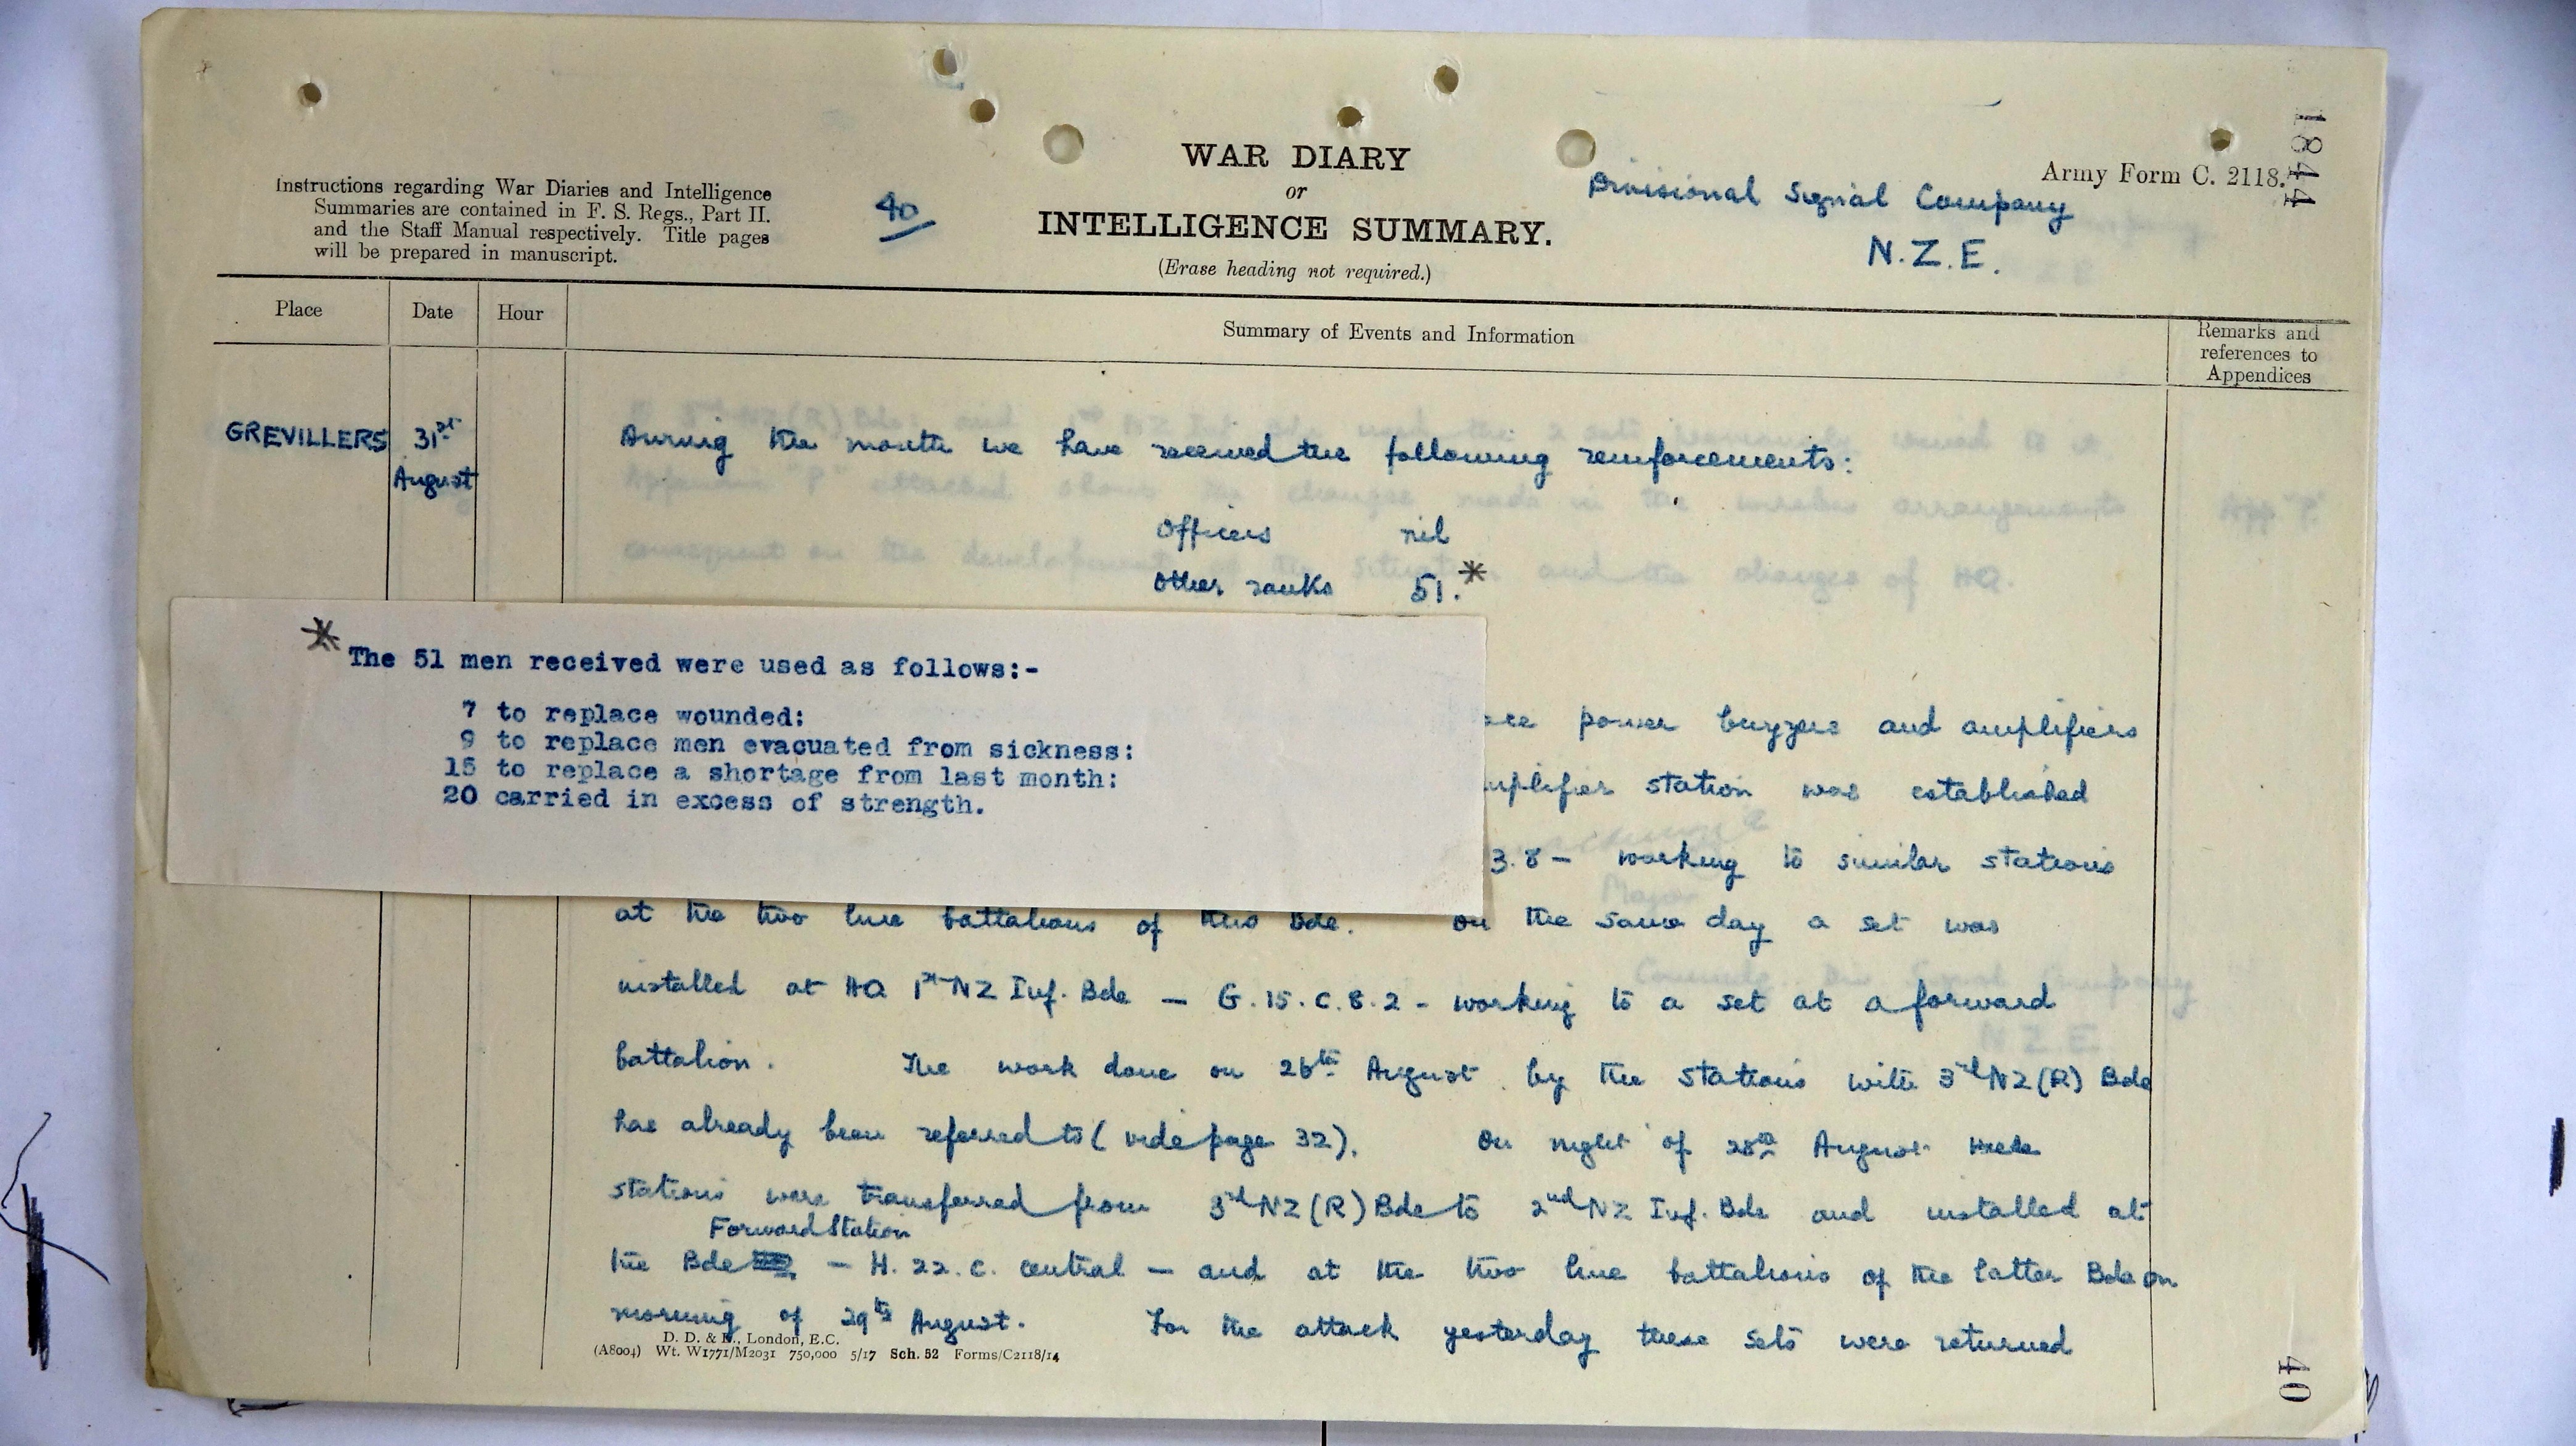 1844
Army Form C. 2118.
WAR DIARY
or
INTELLIGENCE SUMMARY.
(Erase heading not required.)
Instructions regarding War Diaries and Intelligence
Summaries are contained in F. S. Regs., Part II.
and the Staff Manual respectively. Title pages
will be prepared in manuscript.
40
Divisional Signal Company
N.Z.E.
Place
Date
Hour
Summary of Events and Information
Remarks and
references to
Appendices
GREVILLERS
31st
August
During the month we have received the following reinforcements:
Officers nil
Other ranks 51.*
*The 51 men received were used as follows:-
7 to replace wounded:
9 to replace men evacuated from sickness:
15 to replace a shortage from last month:
20 carried in excess of strength.
power buzzers and amplifiers
station was established
3.8 - working to similar stations
at the two line battalions of this Bde. On the same day a set was
installed at HQ 1st NZ Inf. Bde - G.15.c.8.2 - working to a set at a forward
battalion. The work done on 26th August by the stations with 3rd NZ(R) Bde
has already been referred to (vide page 32). On night of 28th August these
stations were transferred from 3rd NZ(R) Bde to 2nd NZ Inf. Bde and installed at
Forward Station
the Bde - H.22.c. central - and at the two line battalions of the latter Bde on
morning of 29th August. For the attack yesterday these sets were returned
D. D. & L., London, E.C.
(A8004) Wt. W1771/M2031 750,000 5/17 Sch. 52 Forms/C2118/14
40